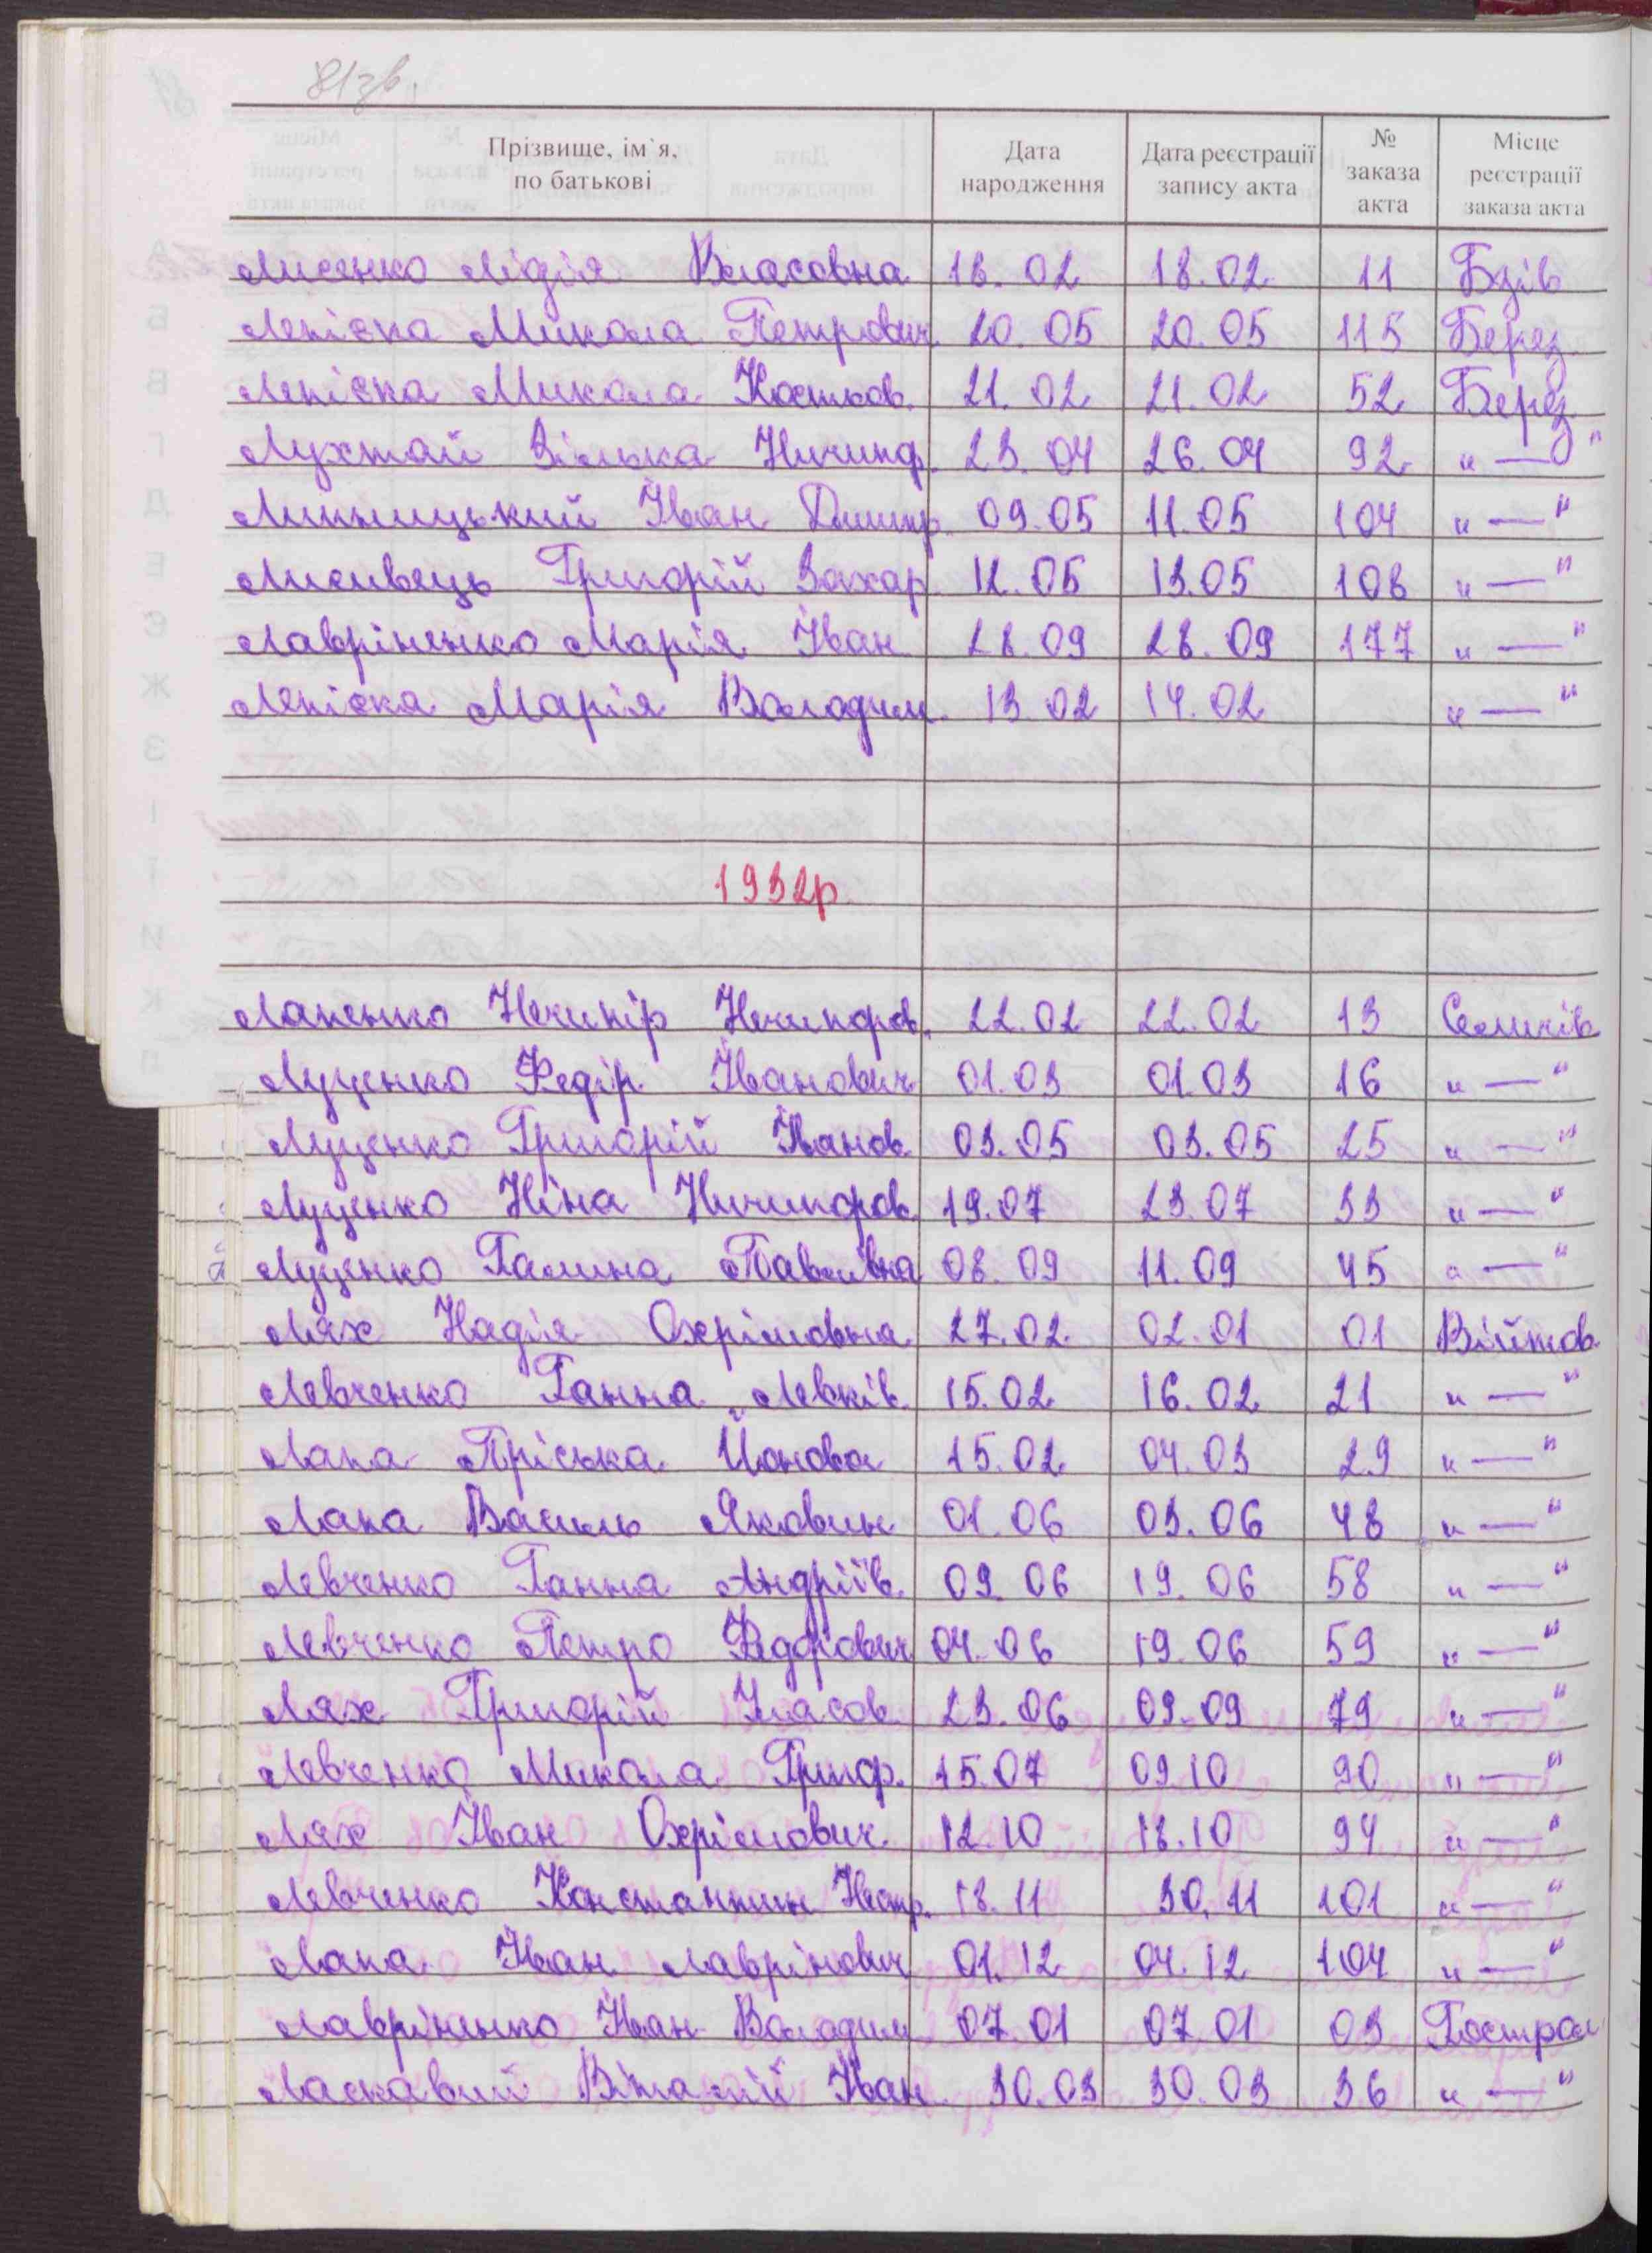 81зв.
Прізвище, ім`я, по батькові Дата народження Дата реєстрації запису акта № заказа акта Місце реєстрації заказа акта
Лисенко Лідія Власовна 18.02 18.02 11 Бзів
Лепієка Микола Петрович 20.05 20.05 115 Берез.
Лепієка Микола Костьов. 21.02 21.02 52 Берез.
Лухтай Зінька Ничипф. 23.04 26.04 92 "—"
Липницький Іван Дмитр. 09.05 11.05 104 "—"
Лисивець Григорій Захар 12.05 13.05 108 "—"
Лавріненко Марія Іван 28.09 28.09 177 "—"
Лепієка Марія Володим. 13.02 14.02 "—"
1932р.
Лапенко Нечипір Нечипоров. 22.02 22.02 13 Селичів
Луценко Федір Іванович 01.03 01.03 16 "—"
Луценко Григорій Іванов. 03.05 03.05 25 "—"
Луценко Ніна Ничипоров. 19.07 23.07 33 "—"
Луценко Галина Павлівна 08.09 11.09 45 "—"
Лях Надія Охрімовна 27.02 02.01 01 Війтов.
Левченко Ганна Левків. 15.02 16.02 21 "—"
Лапа Пріська Йонова 15.02 04.03 29 "—"
Лапа Василь Якович 01.06 03.06 48 "—"
Левченко Ганна Андріїв. 09.06 19.06 58 "—"
Левченко Петро Федорович 04.06 19.06 59 "—"
Лях Григорій Уласов. 23.06 09.09 79 "—"
Левченко Микола Григор. 15.07 09.10 90 "—"
Лях Іван Охрімович. 12.10 18.10 94 "—"
Левченко Константин Нестр. 18.11 30.11 101 "—"
Лапа Іван Лаврінович 01.12 04.12 104 "—"
Лавріненко Іван Володим 07.01 07.01 03 Гострол
Ласкавий Віталій Іван. 30.03 30.03 36 "—"